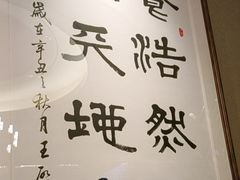 浩然
天地
歲在辛丑之秋月王